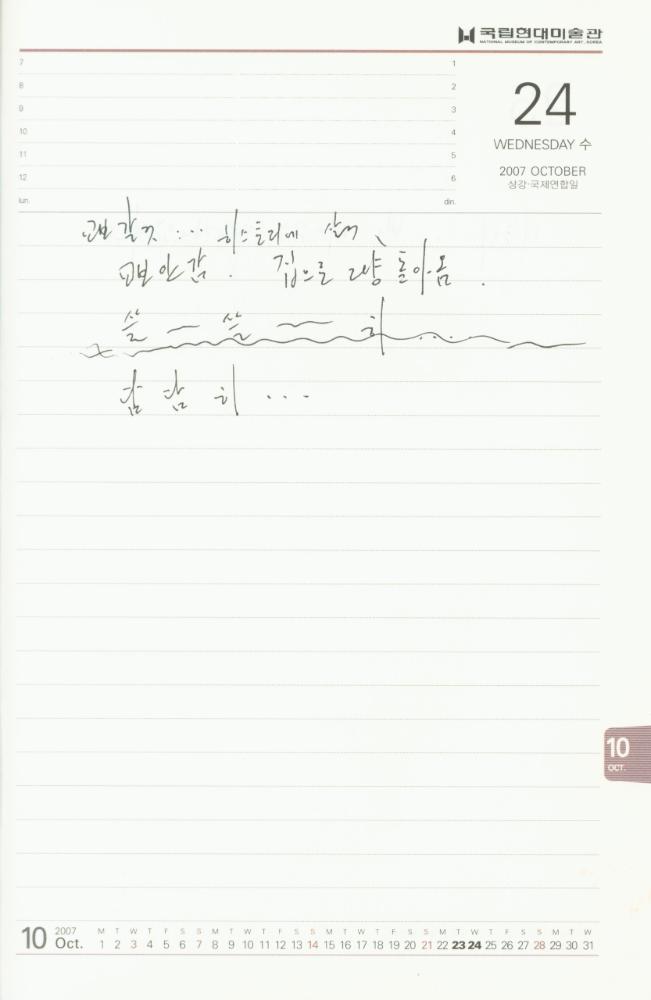 국립현대미술관
NATIONAL MUSEUM OF CONTEMPORARY ART, KOREA
7 1
8 2
9 3
10 4
11 5
12 6
lun. din.
24
WEDNESDAY 수
2007 OCTOBER
상강·국제연합일
교보 갈것 ... 히스토리에 살것、
교보 안감. 집으로 그냥 돌아옴.
쓸 ― 쓸 ― 히 ....
담담히 ...
10
OCT.
10 2007 Oct.
M T W T F S S M T W T F S S M T W T F S S M T W T F S S M T W
1 2 3 4 5 6 7 8 9 10 11 12 13 14 15 16 17 18 19 20 21 22 23 24 25 26 27 28 29 30 31